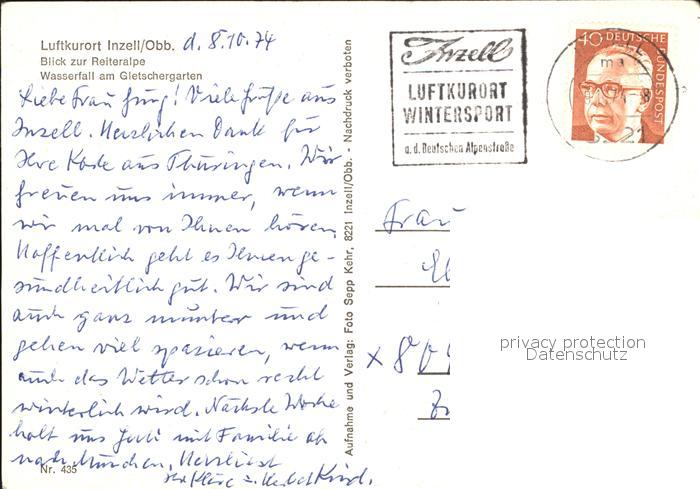 Luftkurort Inzell/Obb. d. 8.10.74
Blick zur Reiteralpe
Wasserfall am Gletschergarten
Liebe Frau Jung! Viele Grüße aus
Inzell. Herzlichen Dank für
Ihre Karte aus Thüringen. Wir
freuen uns immer, wenn
wir mal von Ihnen hören.
Hoffentlich geht es Ihnen ge-
sundheitlich gut. Wir sind
auch ganz munter und
gehen viel spazieren, wenn
auch das Wetter schon recht
winterlich wird. Nächste Woche
holt uns mit Familie ab
nach München. Herzlichst
Ihre Kläre u. Herbert
Nr. 435
Aufnahme und Verlag: Foto Sepp Kehr, 8221 Inzell/Obb. - Nachdruck verboten
Inzell
LUFTKURORT
WINTERSPORT
a.d. Deutschen Alpenstraße
40 DEUTSCHE
BUNDESPOST
Frau
privacy protection
Datenschutz